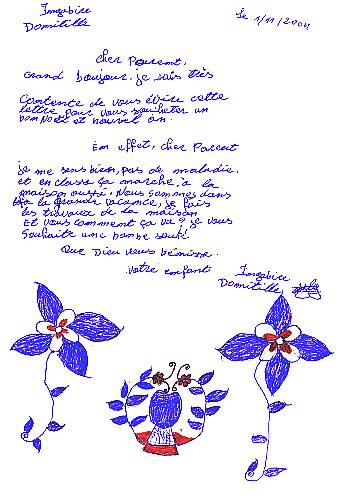 Ingabire
Domitille
Le 1/11/2004
cher Parent,
Grand bonjour, je suis très
Contente de vous écrire cette
lettre pour vous souhaiter un
bon Noël et nouvel an.
En effet, cher Parent
je me sens bien, pas de maladie,
et en classe ça marche, à la
maison aussi. Nous sommes dans
la grande vacance, je fais
les travaux de la maison
Et vous comment ça va? je vous
Souhaite une bonne santé.
Que Dieu vous bénisse.
Votre enfant
Ingabire
Domitille